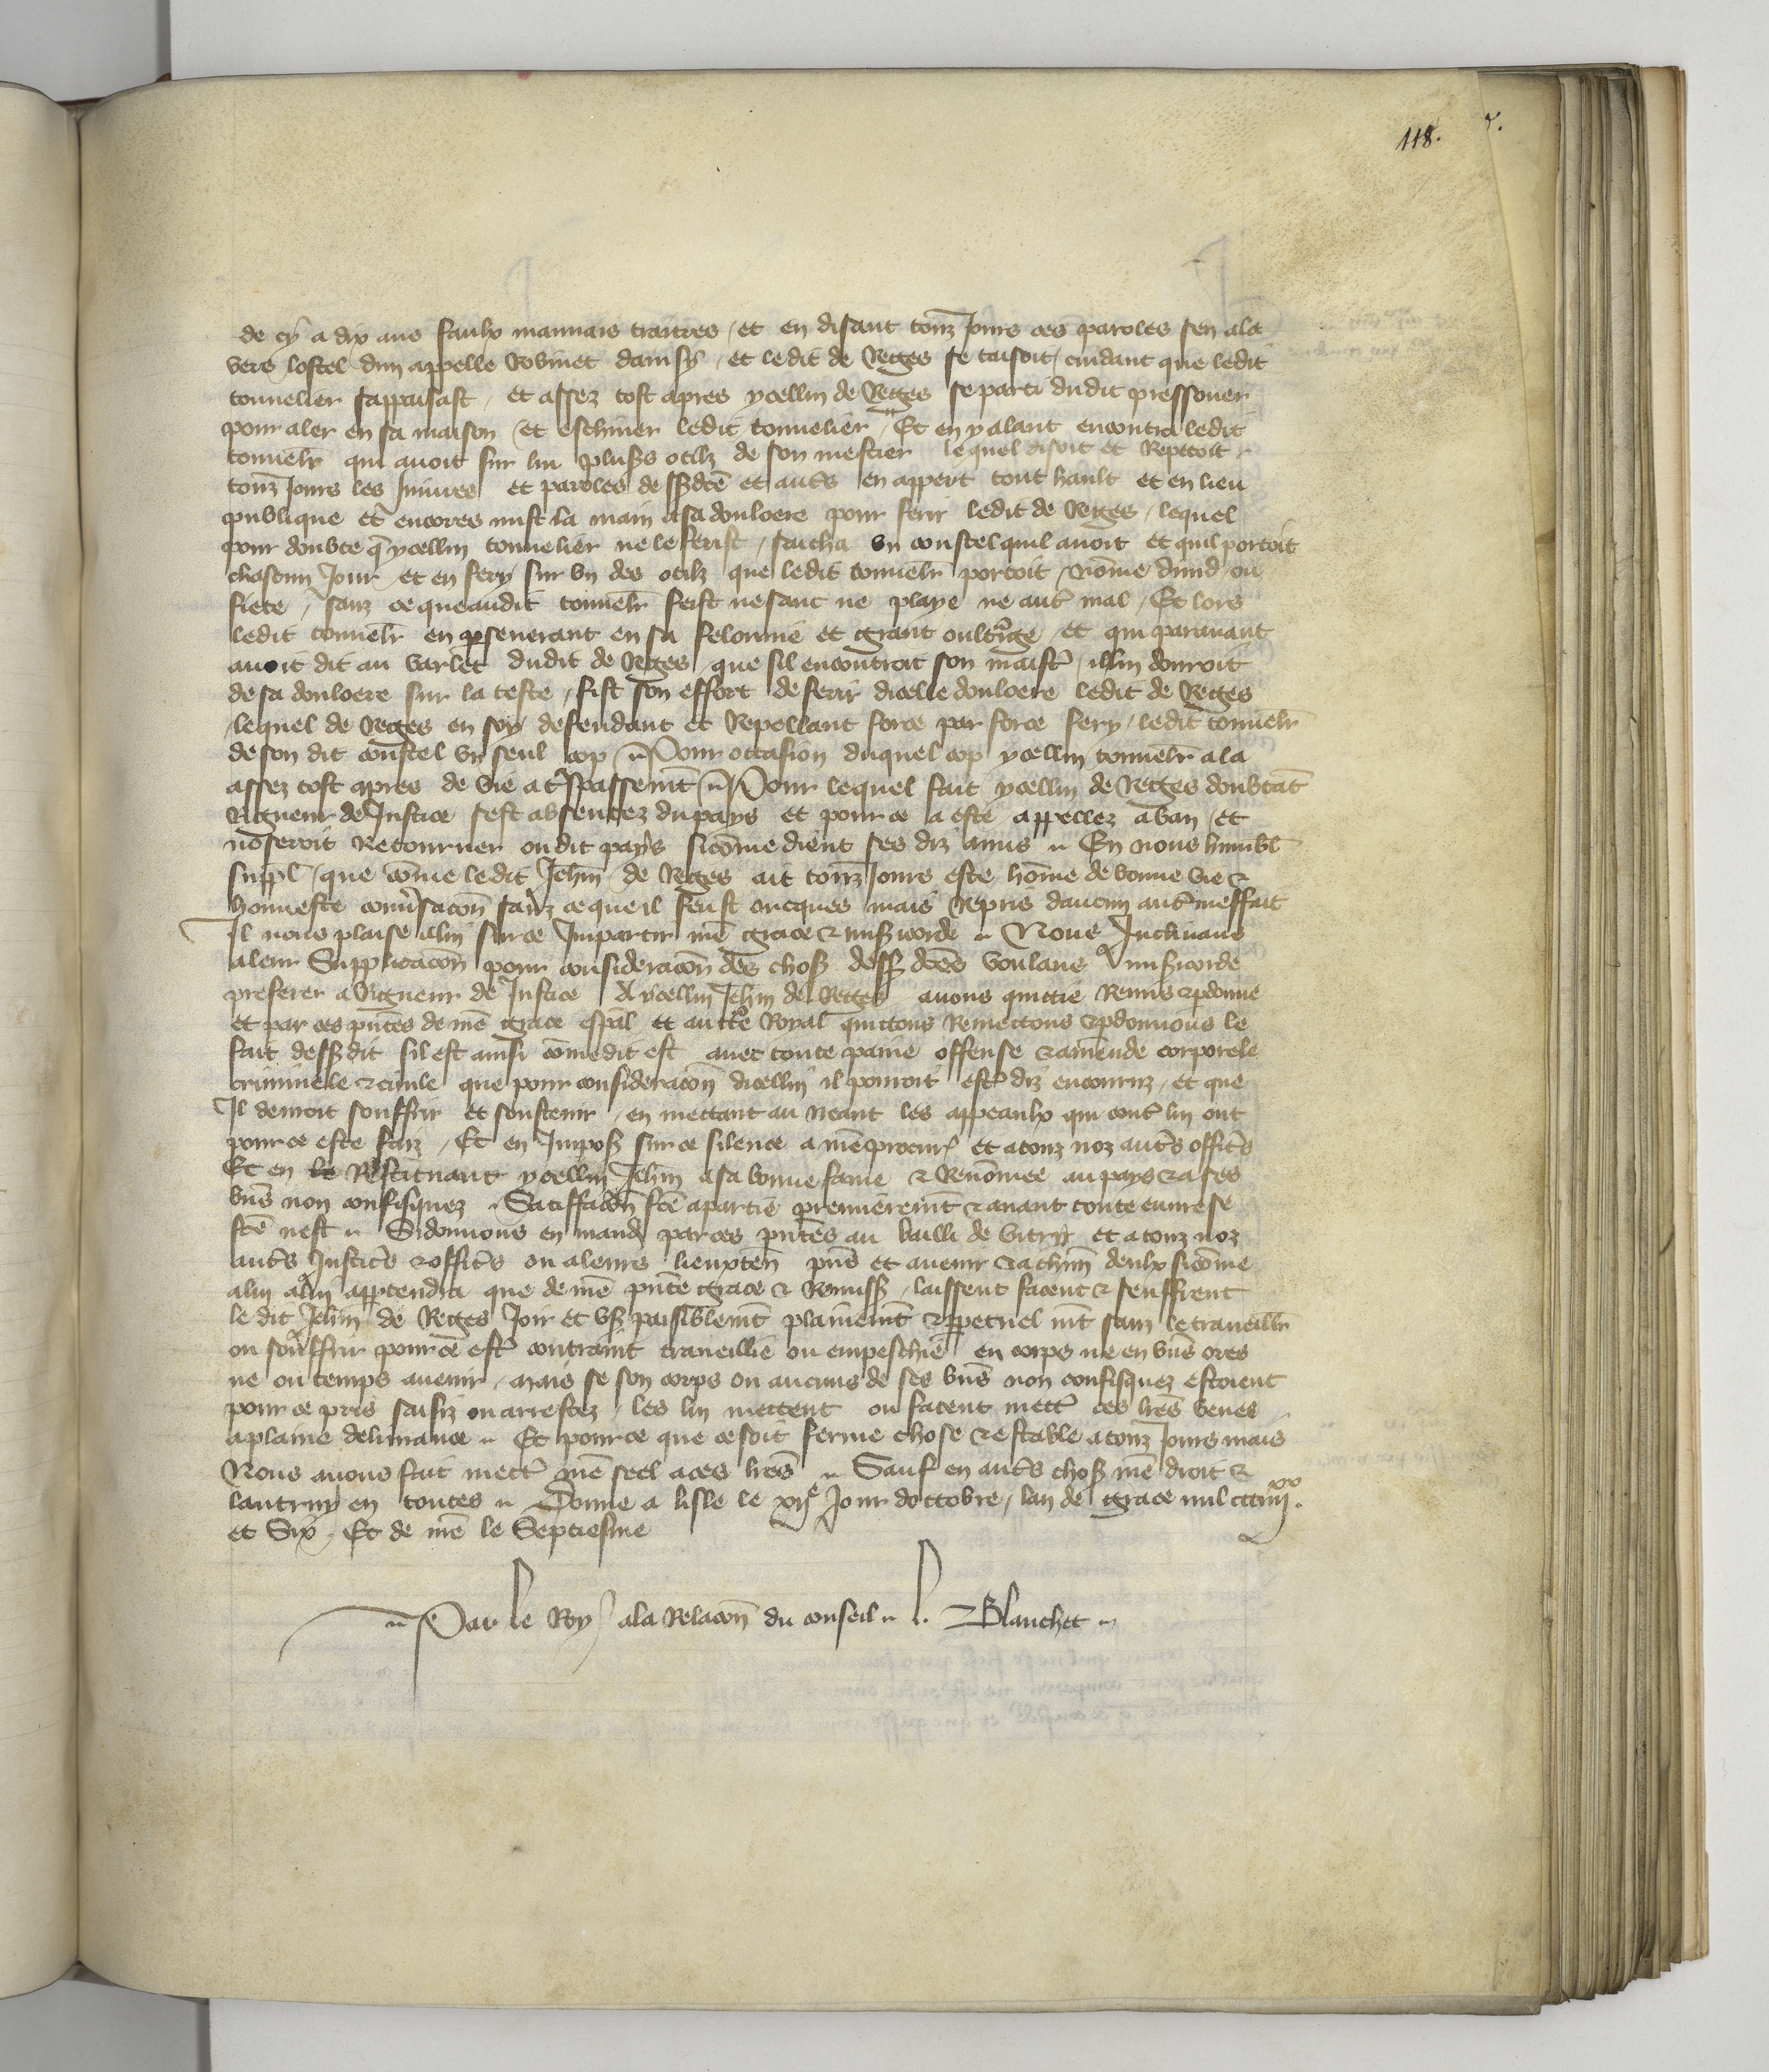 118.
de cy a dix ans faulx mauuais traitres / et en disant touz Jours ces paroles sen ala
vers lostel dun appelle Robinet damsy / et ledit de Reges se taisoit / cuidant que ledit
tonnelier sappaisast / et assez tost apres ycellui de Reges se parti dudit pressouer
pour aler en sa maison / et eschiuer ledit tonnelier / Et en y alant encontra ledit
tonnelr qui auoit sur lui pluss otilz de son mestier lequel disoit et Repetoit
touz Jours les Iniures et paroles dessdcẽs et autrs en appert tout hault et en lieu
publique et encores mist la main a sa douloere pour ferir ledit de Reges / lequel
pour doubte q̃ ycellui tonnelier ne le ferist / sacha vn coustel quil auoit et quil portoit
chascun Jour / et en fery sur vn des otilz que ledit tonnelr portoit / nõme
fiete / sanz ce que audit tonnelr feist ne sanc ne playe ne autr mal / Et lors
ledit tonnelr en p̱seuerant en sa felonnie et grant oultrage / et qui parauant
auoit dit au varlet dudit de Reges / que sil encontroit son maistr / il lui donroit
de sa douloere sur la teste / fist son effort de ferir dicelle douloere ledit de Reges
/ lequel de Reges en soy defendant et Repellant force par force fery / ledit tonnelr
de son dit coustel vn seul cop / Pour occasion duquel cop ycellui tonnelr ala
assez tost apres de vie a trespassemt / Pour lequel fait ycellui de Reges doubtãt
Rigueur de Justice sest absentez du pays et pour ce a este appellez a ban / et
noseroit Retourner ou dit pays sicõme dient ses diz amis / En nous humbl
suppl / que cõme ledit Jehan de Reges ait touz Jours este hõme de bonne vie &
honneste conu̾sacõn sanz ce que il feust oncques mais Repris daucun autr meffait
Il nous plaise a lui sur ce Impartir nr̃e grace & mis̃icorde / Nous Inclinans
a leur Supplicacõn pour consideracõn des chosẽs dessdcẽs voulans mis̃icorde
preferer a Rigueur de Justice A ycellui Jehan de Reges auons quittie Remis & p̱donne
et par ces pñtes de nr̃e grace esp̃al et auctr̃e Royal quittons Remettons & p̱donnons le
fait dessdit sil est ainsi cõme dit est auec toute paine offense & amende corporele
criminele & ciuile que pour consideracõn dicellui il pourroit estr̃ diz encouruz / et que
Il deuroit souffrir et soustenir / en mettant au neant les appeaulx qui contr̃ lui ont
pour ce este faiz / Et en Imposs̃ sur ce silence a nr̃e procur̃ et a touz noz autr̃s offic̃s
Et en Restituant ycellui Jehan a sa bonne fame & Renõmee au pays & a ses
biẽs non confisquez / Satiffacõn fc̃e a partie premieremt & auant toute euure se
fc̃e nest / Si donnons en mand̃ par ces pñtes au bailli de Vitry et a touz noz
autr̃s Justic̃s & offic̃s ou a leurs lieuxten̄ pñs et auenir & a chũn deulx sicõme
a lui app̱tendra que de nr̃e pñte grace & Remiss̃ / laissent facent & seuffrent
le dit Jehan de Reges Joir et vs̃ paisiblemt plainemt & p̱petuelmt sanz le traueillr̃
ou souffrir pour ce estr̃ contraint traueillie ou empeschie en corps ne en biẽs ores
ne ou temps auenir / mais se son corps ou aucuns de ses biẽs non confisquez estoient
pour ce pris saisiz ou arrestez / les lui mettent ou facent mettr̃ ces lr̃es veues
a plaine deliurance / Et pour ce que ce soit ferme chose & estable a touz Jours mais
Nous auons fait mettr̃ nr̃e seel a ces lr̃es / Sauf en autr̃s chosẽs nr̃e droit &
lautruy en toutes / Donne a lisle le xije Jour doctobre / lan de grace mil ccciiijxx.
et Six / Et de nr̃e Regne le Septiesme
Par le Roy / a la Relacõn du conseil / L. Blanchet /